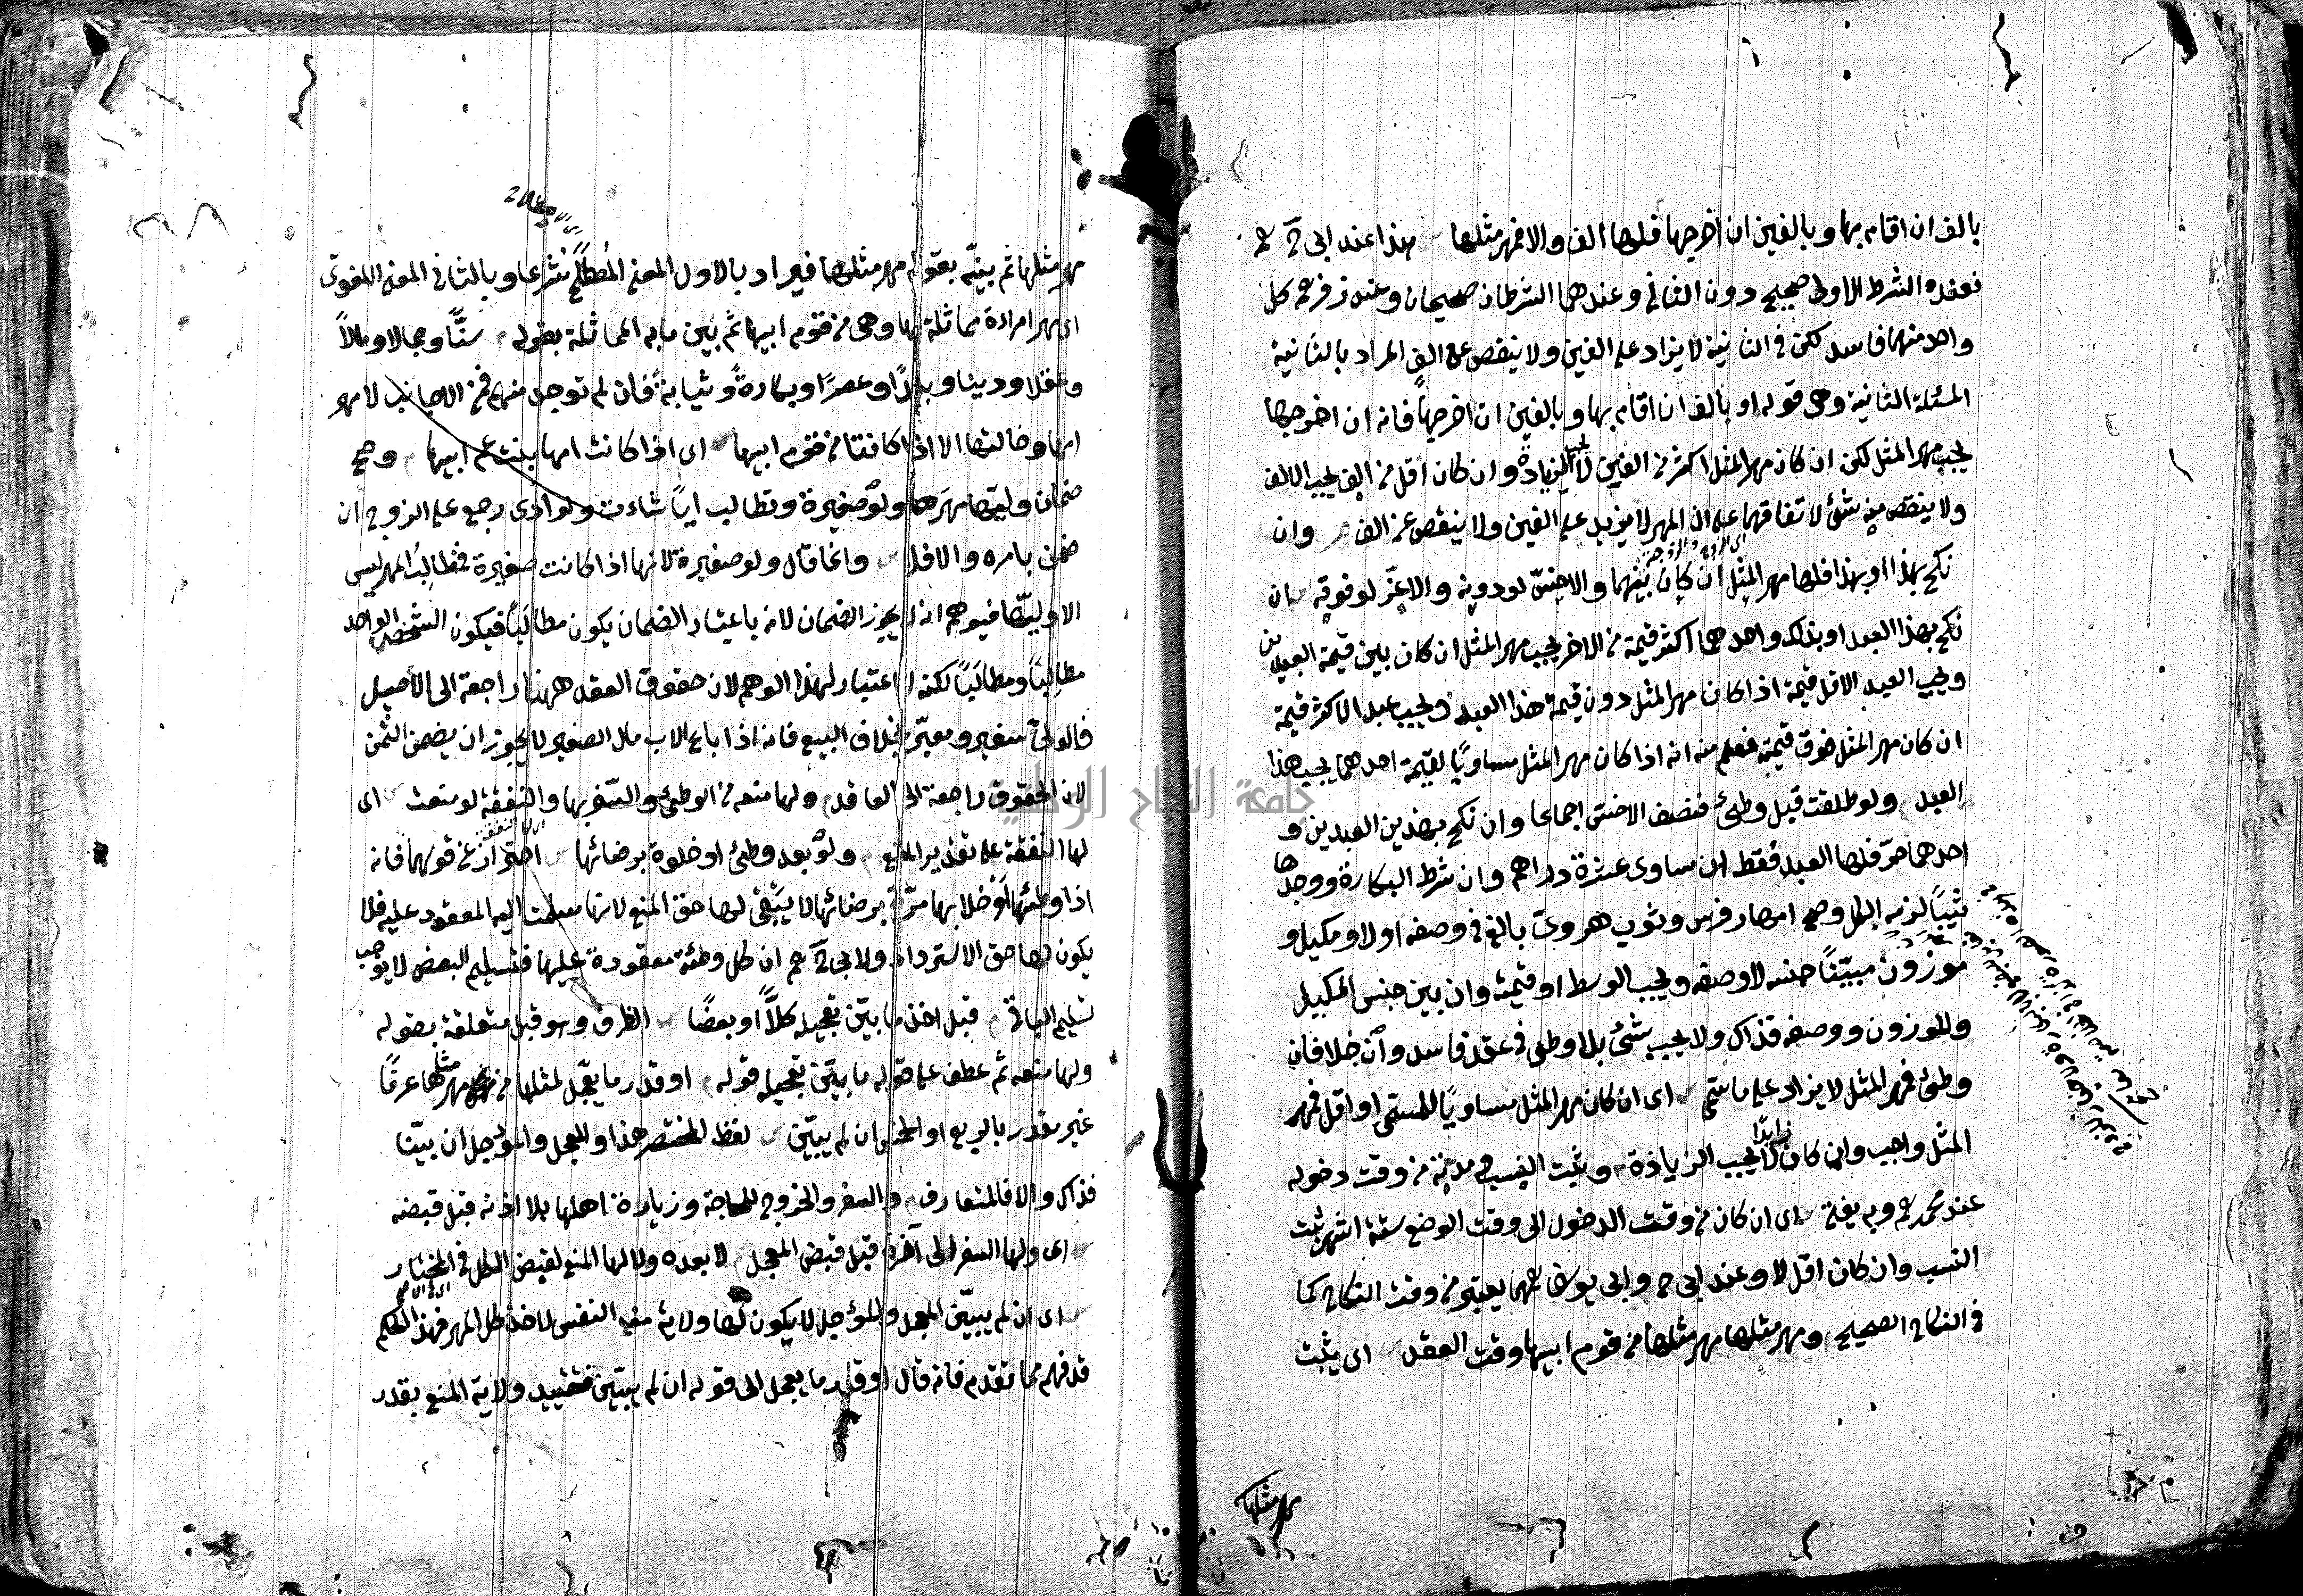 بالف ان اقام بها وبالفين ان اخرجها فلها الف والا فمهر مثلها هذا عند ابى
فعنده الشرط الاول صحيح دون الثانى وعندهما الشرطان صحيحان وعند زفر رحم كل
واحد منهما فاسد لكن فى الثانية لا يزاد على الفين ولا ينقص عن الف المراد بالثانية
المسئلة الثانية وهى قوله او بالف ان اقام بها وبالفين ان اخرجها فانه ان اخرجها
يجب مهر المثل لكن ان كان مهر المثل اكثر من الفين لا يجب الزيادة وان كان اقل من الف يجب الالف
ولا ينقص منه شئ لاتفاقهما على ان المهر لا يزيد على الفين ولا ينقص عن الف وان
نكح بهذا او بهذا فلها مهر المثل ان كان بينهما والاخس لو دونه والاعز لو فوقه ان
اى الزوج والزوجة
نكح بهذا العبد او بذلك واحدهما اكثر قيمة من الاخر يجب مهر المثل ان كان بين قيمة العبدين
ويجب العبد الاقل قيمة اذا كان مهر المثل دون قيمة هذا العبد ويجب عبد الاكثر قيمة
ان كان مهر المثل فوق قيمته فعلم منه انه اذا كان مهر المثل مساويًا لقيمة احدهما يجب هذا
العبد ولو طلقت قبل وطئ فنصف الاخس اجماعا وان نكح بهذين العبدين و
احدهما حرّ فلها العبد فقط ان ساوى عشرة دراهم وان شرط البكارة ووجدها
ثيبًا لزمه الكل وصح امهار فرس وثوب هروىّ بالغ فى وصفه او لا ومكيل و
موزون مبيّنًا جنسه لا وصفه ويجب الوسط او قيمته وان بين جنس المكيل
والموزون ووصفه فذاك ولا يجب شئ بلا وطى فى عقد فاسد وان خلا فان
وطئ فمهر المثل لا يزاد على ما سمّى اى ان كان مهر المثل مساويًا للمسمى او اقل فمهر
المثل واجب وان كان زايدًا لا يجب الزيادة ويثبت النسب فى مدته من وقت دخوله
عند محمد رحم وبه يفتى اى ان كان من وقت الدخول الى وقت الوضع ستة اشهر يثبت
النسب وان كان اقل لا وعند ابى ح وابى يوسف يعتبر من وقت النكاح كما
فى النكاح الصحيح ومهر مثلها مهر مثلها من قوم ابيها وقت العقد اى يثبت
مهر مثلها
مهر مثلها ثم بينه بقوله مهر مثلها فيراد بالاول المعنى المصطلح شرعا وبالثانى المعنى اللغوى
اى مهر امراءة مماثلة لها وهى من قوم ابيها ثم بين ما به المماثلة بقوله سنًّا وجمالا ومالاً
وعقلا ودينا وبلدًا وعصرًا وبكارةً وثيابةً فان لم توجد منهم فمن الاجانب لا مهر
امها وخالتها الا اذا كانتا من قوم ابيها اى اذا كانت امها بنت عم ابيها وصح
ضمان وليّها مهرها ولو صغيرة وتطالب ايًّا شاءت ولو ادى رجع على الزوج ان
ضمن بامره والا فلا وانما قال ولو صغيرة لانها اذا كانت صغيرة فمطالب المهر ليس
الا وليّها فيوهم انه لا يجوز الضمان لانه باعتبار الضمان يكون مطالَبًا فيكون الشخص الواحد
مطالِبًا ومطالَبًا لكنه لا اعتبار لهذا الوهم لان حقوق العقد ههنا راجعة الى الاصيل
فالولى سفير ومعبّر بخلاف البيع فانه اذا باع الاب مال الصغير لا يجوز ان يضمن الثمن
لان الحقوق راجعة الى العاقد ولها منعه من الوطئ والسفر بها والنفقة لو منعت اى
لها النفقة على تقدير المنع ولو بعد وطئ او خلوة برضائها احتراز عن قولهما فانه
اذا وطئها او خلا بها مرّة برضائها لا يبقى لها حق المنع لانها سلمت اليه المعقود عليه فلا
يكون لها حق الاسترداد ولابى ح رحم ان كل وطئة معقودة عليها فتسليم البعض لا يوجب
تسليم الباقى قبل اخذ ما بيّن تعجيله كلاًّ او بعضًا الظرف وهو قبل متعلقة بقوله
ولها منعه ثم عطف على قوله ما بيّن تعجيله قوله او قدر ما يعجّل لمثلها من مهر مثلها عرفًا
غير مقدر بالربع او الخمس ان لم يبيّن لفظ المختصر هذا والمعجل والمؤجل ان بيّنا
فذاك والا فالمتعارف والسفر والخروج للحاجة وزيارة اهلها بلا اذنه قبل قبضه
اى ولها السفر الى آخره قبل قبض المعجل لا بعده ولا لها المنع لقبض الكل فى المختار
اى ان لم يبيّن المعجل والمؤجل لا يكون لها ولاية منع النفس لاخذ كل المهر فهذا الحكم
قد فهم مما تقدم فانه قال او قدر ما يعجل الى قوله ان لم يبيّن فتقييد ولاية المنع بقدر
جامعة النجاح الوطنية